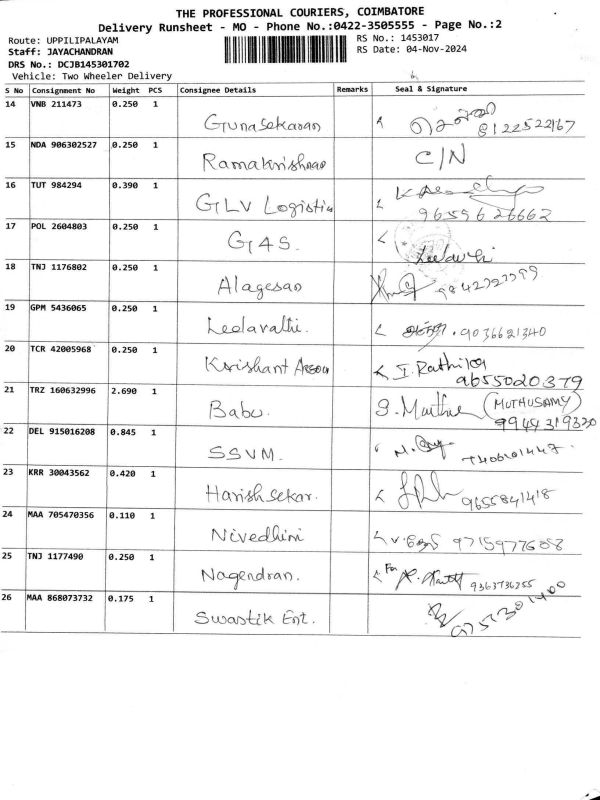 THE PROFESSIONAL COURIERS, COIMBATORE
Delivery Runsheet - MO - Phone No.:0422-3505555 - Page No.:2
Route: UPPILIPALAYAM
RS No.: 1453017
Staff: JAYACHANDRAN
RS Date: 04-Nov-2024
DRS No.: DCJB145301702
Vehicle: Two Wheeler Delivery
S No Consignment No Weight PCS Consignee Details Remarks Seal & Signature
14 VNB 211473 0.250 1
Gunasekaran
8122522167
15 NDA 906302527 0.250 1
Ramakrishnan C/N
16 TUT 984294 0.390 1
GLV Logistics
9659626662
17 POL 2604803 0.250 1
G4S.
Leelavathi
18 TNJ 1176802 0.250 1
Alagesan
19 GPM 5436065 0.250 1
Leelavathi. 9036621340
20 TCR 42005968 0.250 1
Krishant I. Rathika
9655020379
21 TRZ 160632996 2.690 1
Babu. (MUTHUSAMY)
9944319320
22 DEL 915016208 0.845 1
SSVM.
23 KRR 30043562 0.420 1
Harishsekar. 9655841418
24 MAA 705470356 0.110 1
Nivedhini
25 TNJ 1177490 0.250 1
Nagendran. For 9363736255
26 MAA 868073732 0.175 1
Swastik Ent.